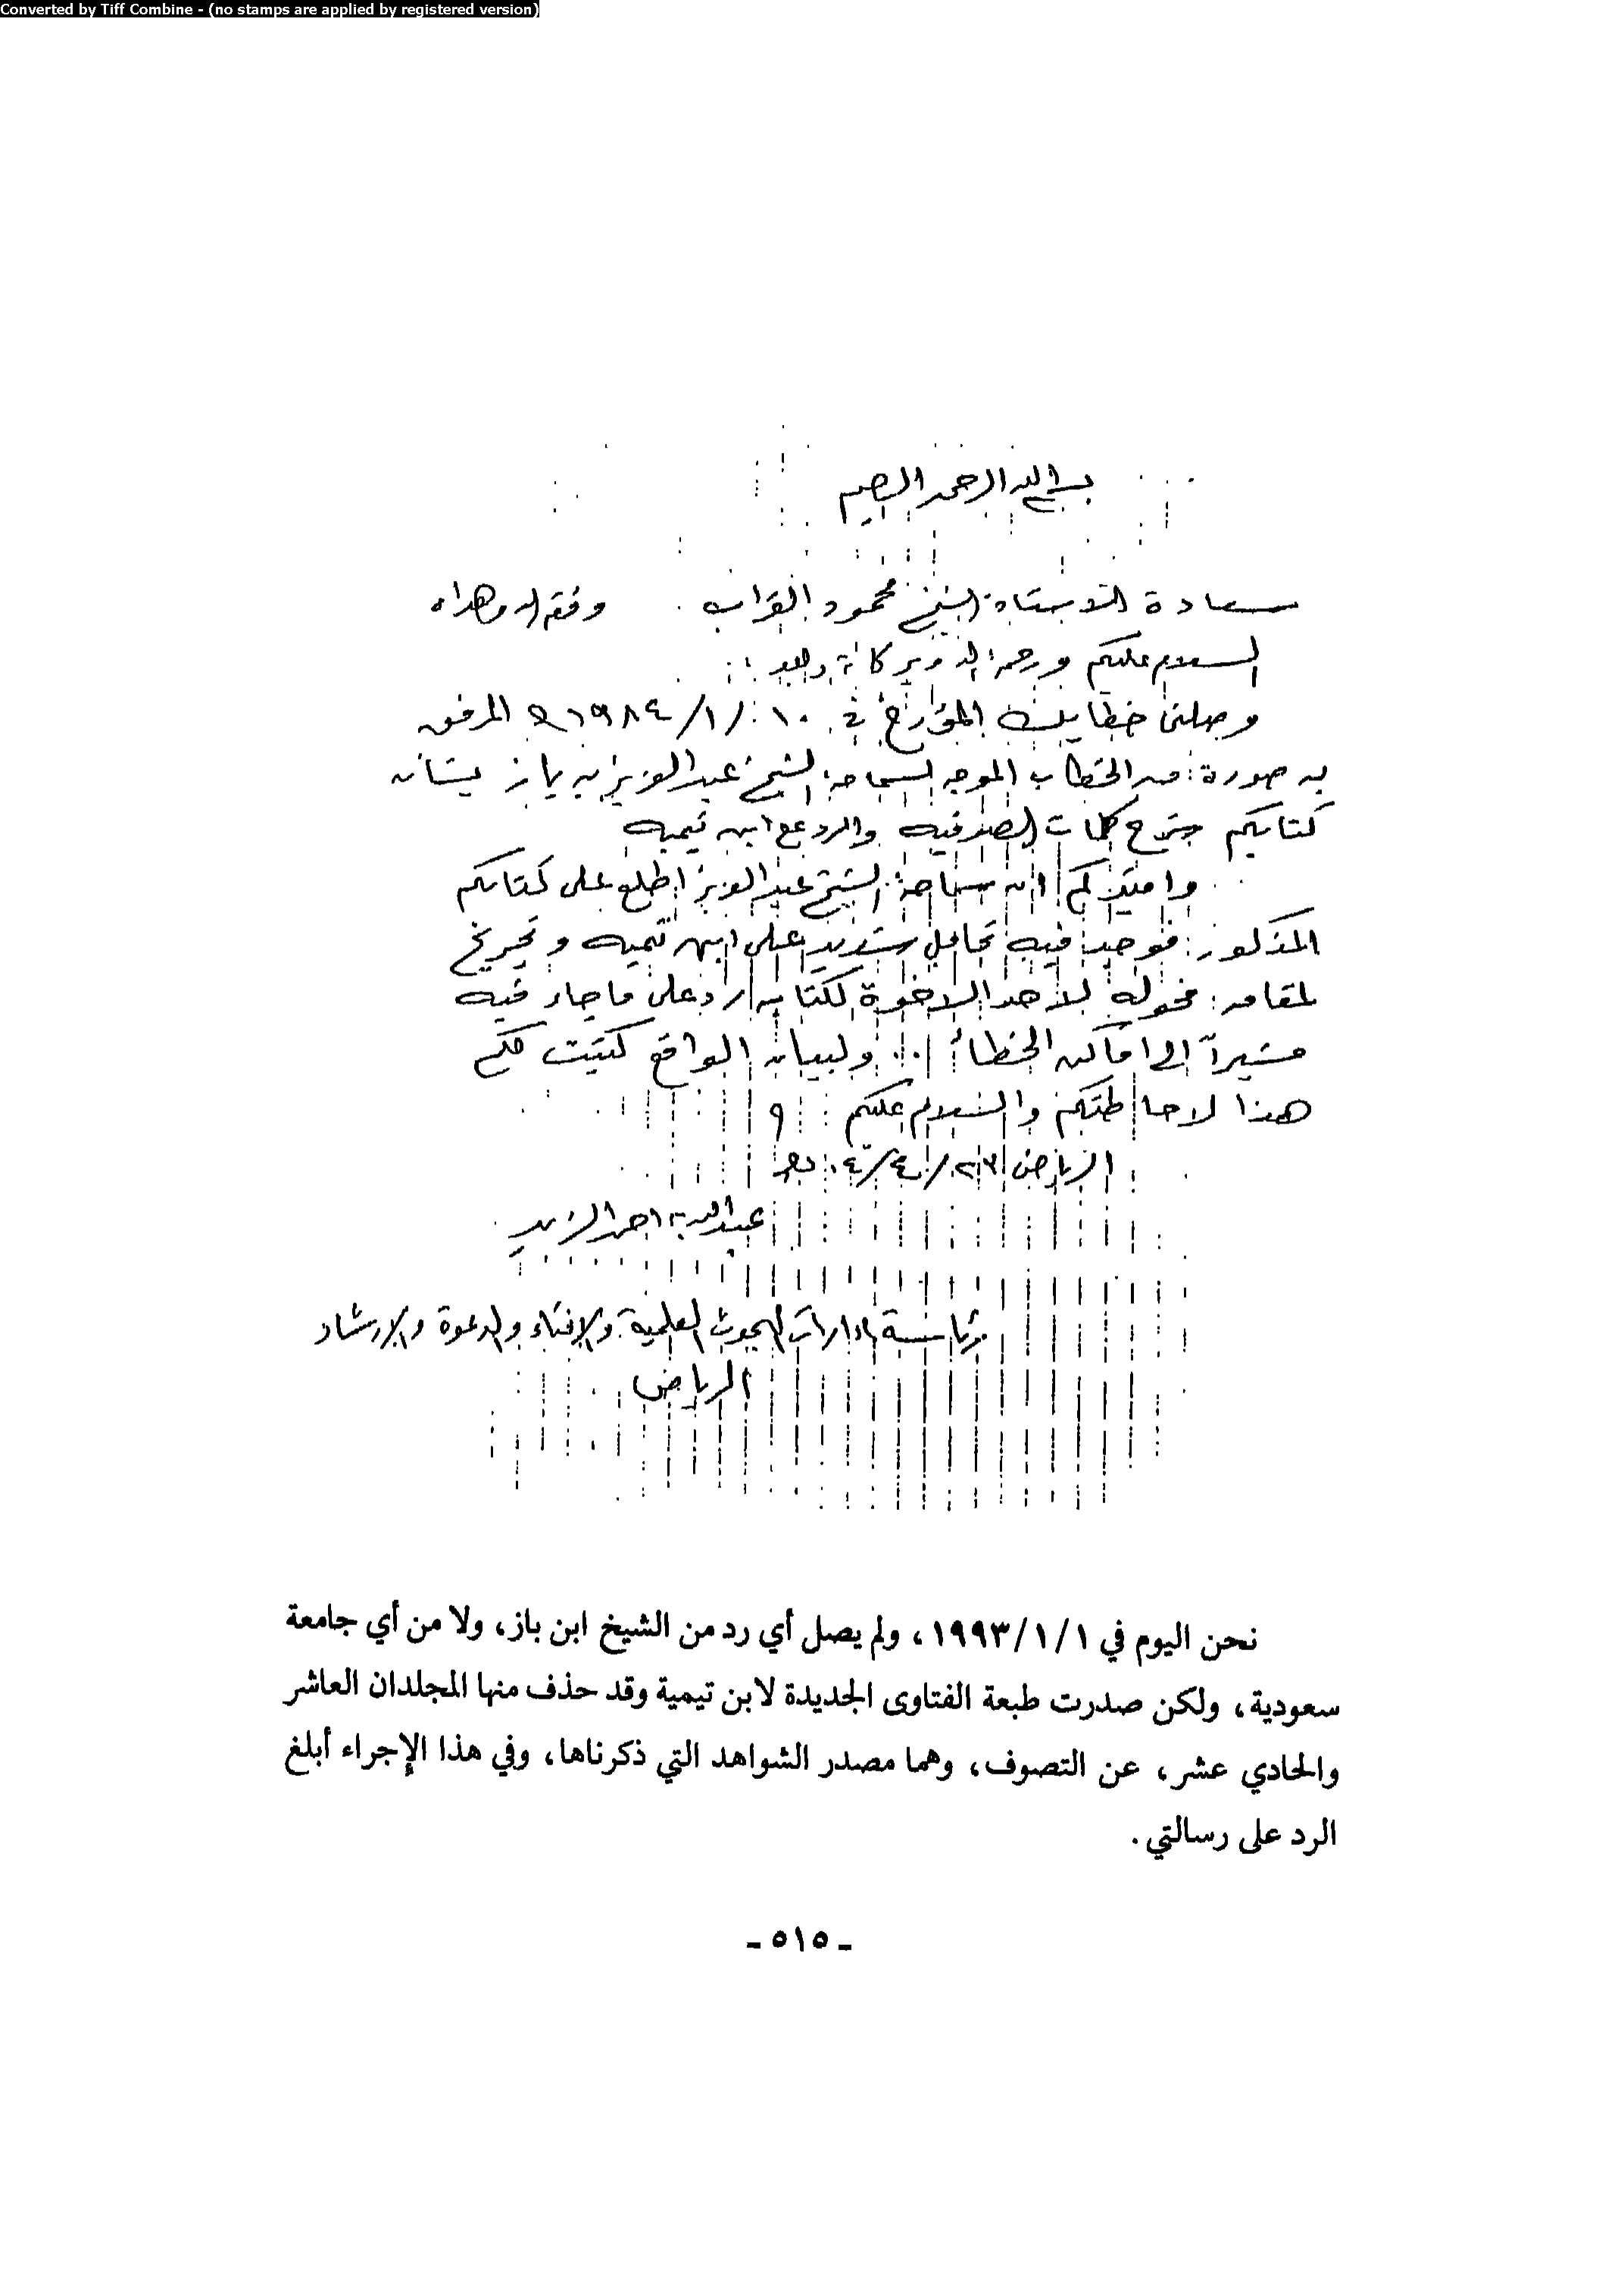 Converted by Tiff Combine - (no stamps are applied by registered version)
بسم الله الرحمن الرحيم
سعادة الاستاذ الشيخ محمود الغراب وفقه الله وهداه
السلام عليكم ورحمة الله وبركاته وبعد :
وصلني خطابك المؤرخ في ١٠/١/١٩٨٤ المرفق
به صورة من الخطاب الموجه لسماحة الشيخ عبدالعزيز بن باز بشأن
كتابكم شرح كلمات الصوفيه والرد على ابن تيميه
وافيدكم ان سماحة الشيخ عبدالعزيز اطلع على كتابكم
المذكور فوجد فيه تحامل شديد على ابن تيميه وتجريح
لمقامه فحوله لاحد الاخوة لكتابة رد على ما جاء فيه
مشيراً إلى اماكن الخطأ ولبيان الواقع كتبت لكم
هذا لاحاطتكم والسلام عليكم
الرياض ٠٤/٤/٢٣هـ
عبدالله احمد الزيد
رئاسة ادارات البحوث العلمية والإفتاء والدعوة والإرشاد
الرياض
نحن اليوم في ١/١/١٩٩٣، ولم يصل أي رد من الشيخ ابن باز، ولا من أي جامعة
سعودية، ولكن صدرت طبعة الفتاوى الجديدة لابن تيمية وقد حذف منها المجلدان العاشر
والحادي عشر، عن التصوف، وهما مصدر الشواهد التي ذكرناها، وفي هذا الإجراء أبلغ
الرد على رسالتي.
- ٥١٥ -